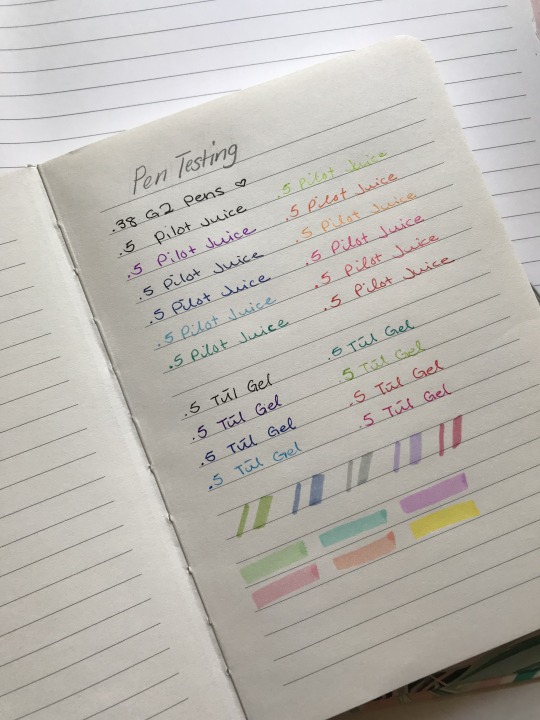 Pen Testing
.38 G2 Pens ♡
.5 Pilot Juice .5 Pilot Juice
.5 Pilot Juice .5 Pilot Juice
.5 Pilot Juice .5 Pilot Juice
.5 Pilot Juice .5 Pilot Juice
.5 Pilot Juice .5 Pilot Juice
.5 Pilot Juice .5 Pilot Juice
.5 Tūl Gel .5 Tūl Gel
.5 Tūl Gel .5 Tūl Gel
.5 Tūl Gel .5 Tūl Gel
.5 Tūl Gel .5 Tūl Gel